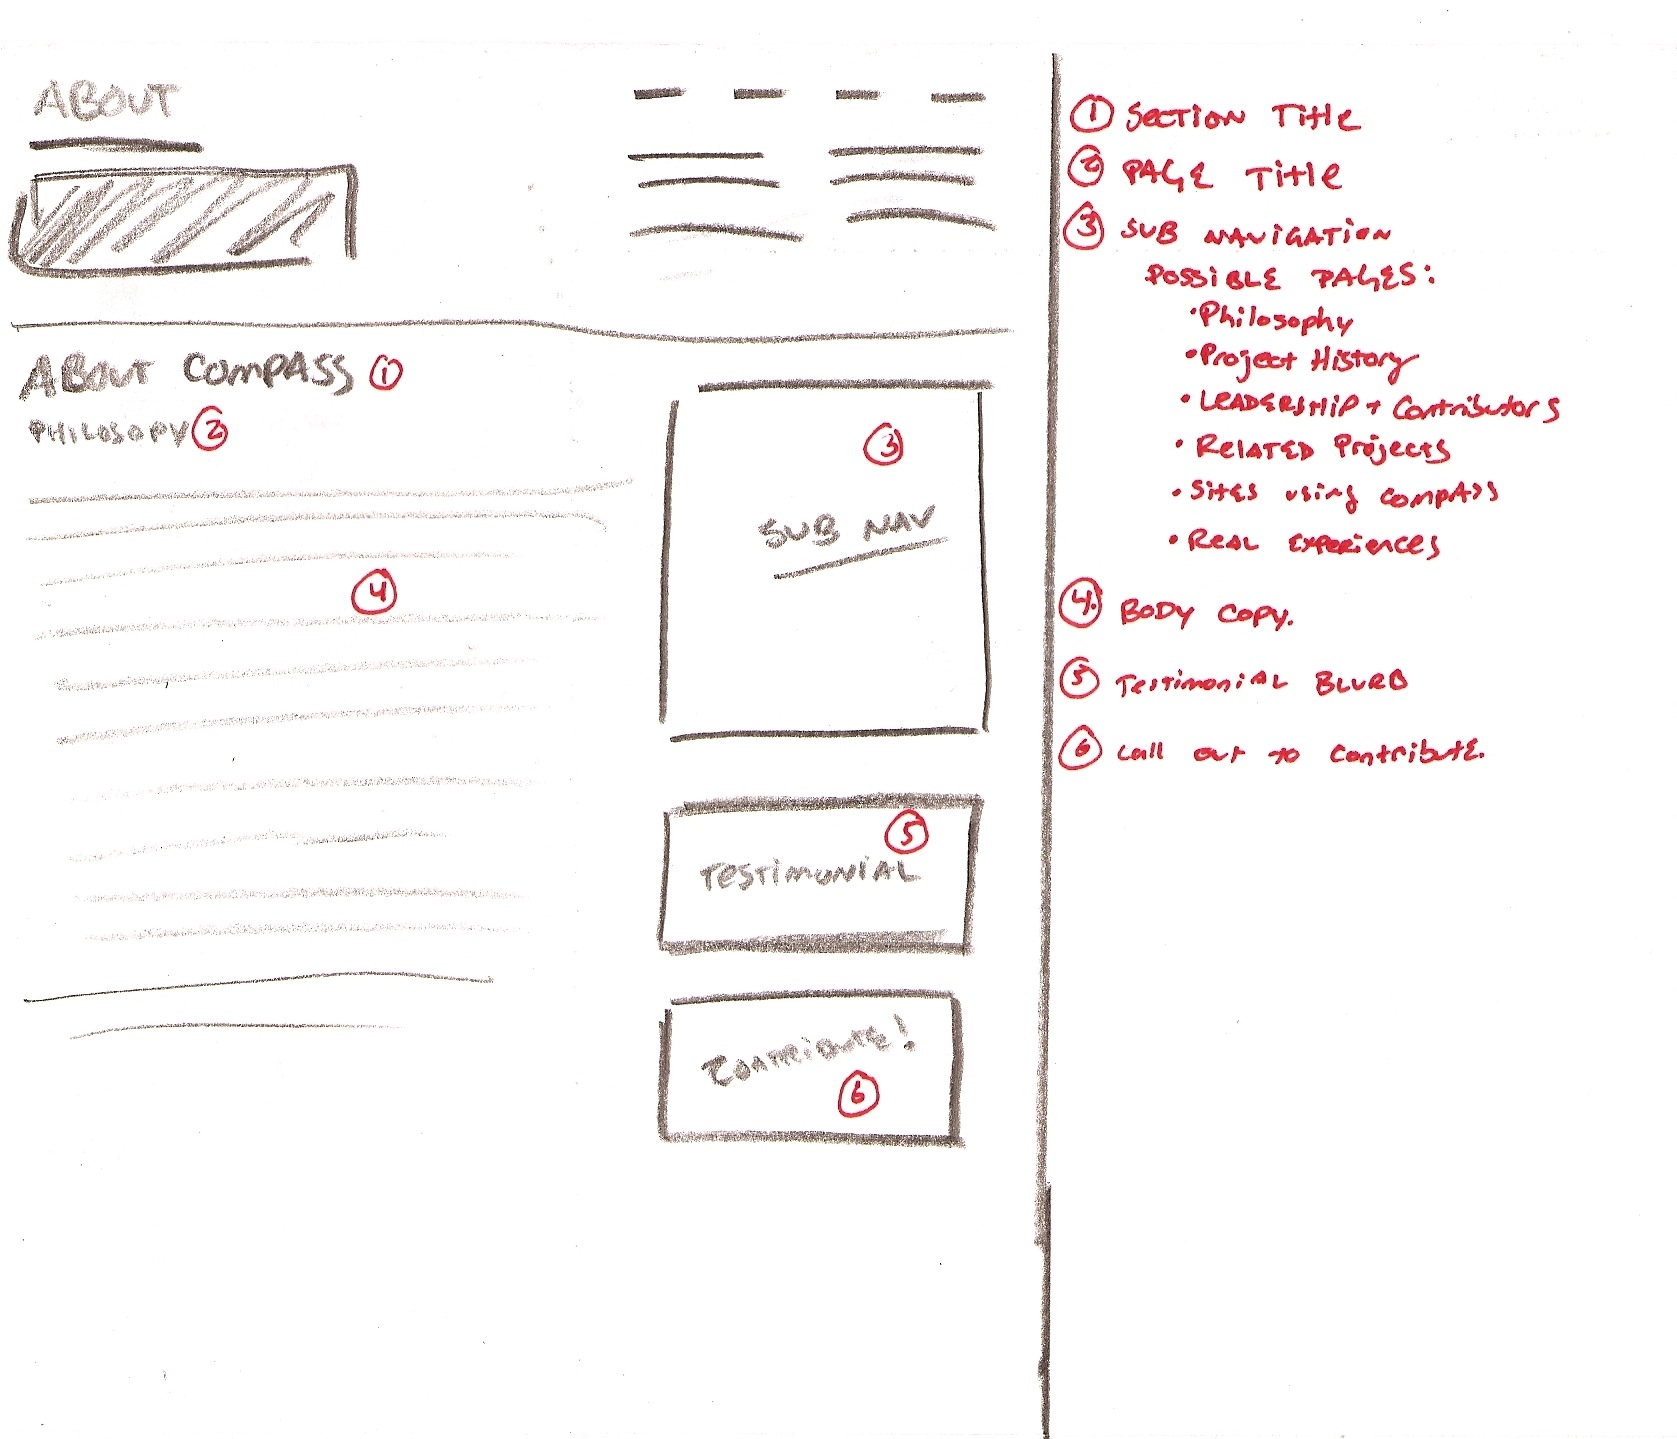 ABOUT
ABOUT COMPASS 1
PHILOSOPY 2
3
SUB NAV
4
5
TESTIMONIAL
CONTRIBUTE!
6
1 SECTION TITLE
2 PAGE TITLE
3 SUB NAVIGATION
POSSIBLE PAGES:
• Philosophy
• Project History
• LEADERSHIP + Contributors
• RELATED Projects
• Sites using COMPASS
• REAL EXPERIENCES
4. BODY COPY.
5 Testimonial BLURB
6 Call out to contribute.